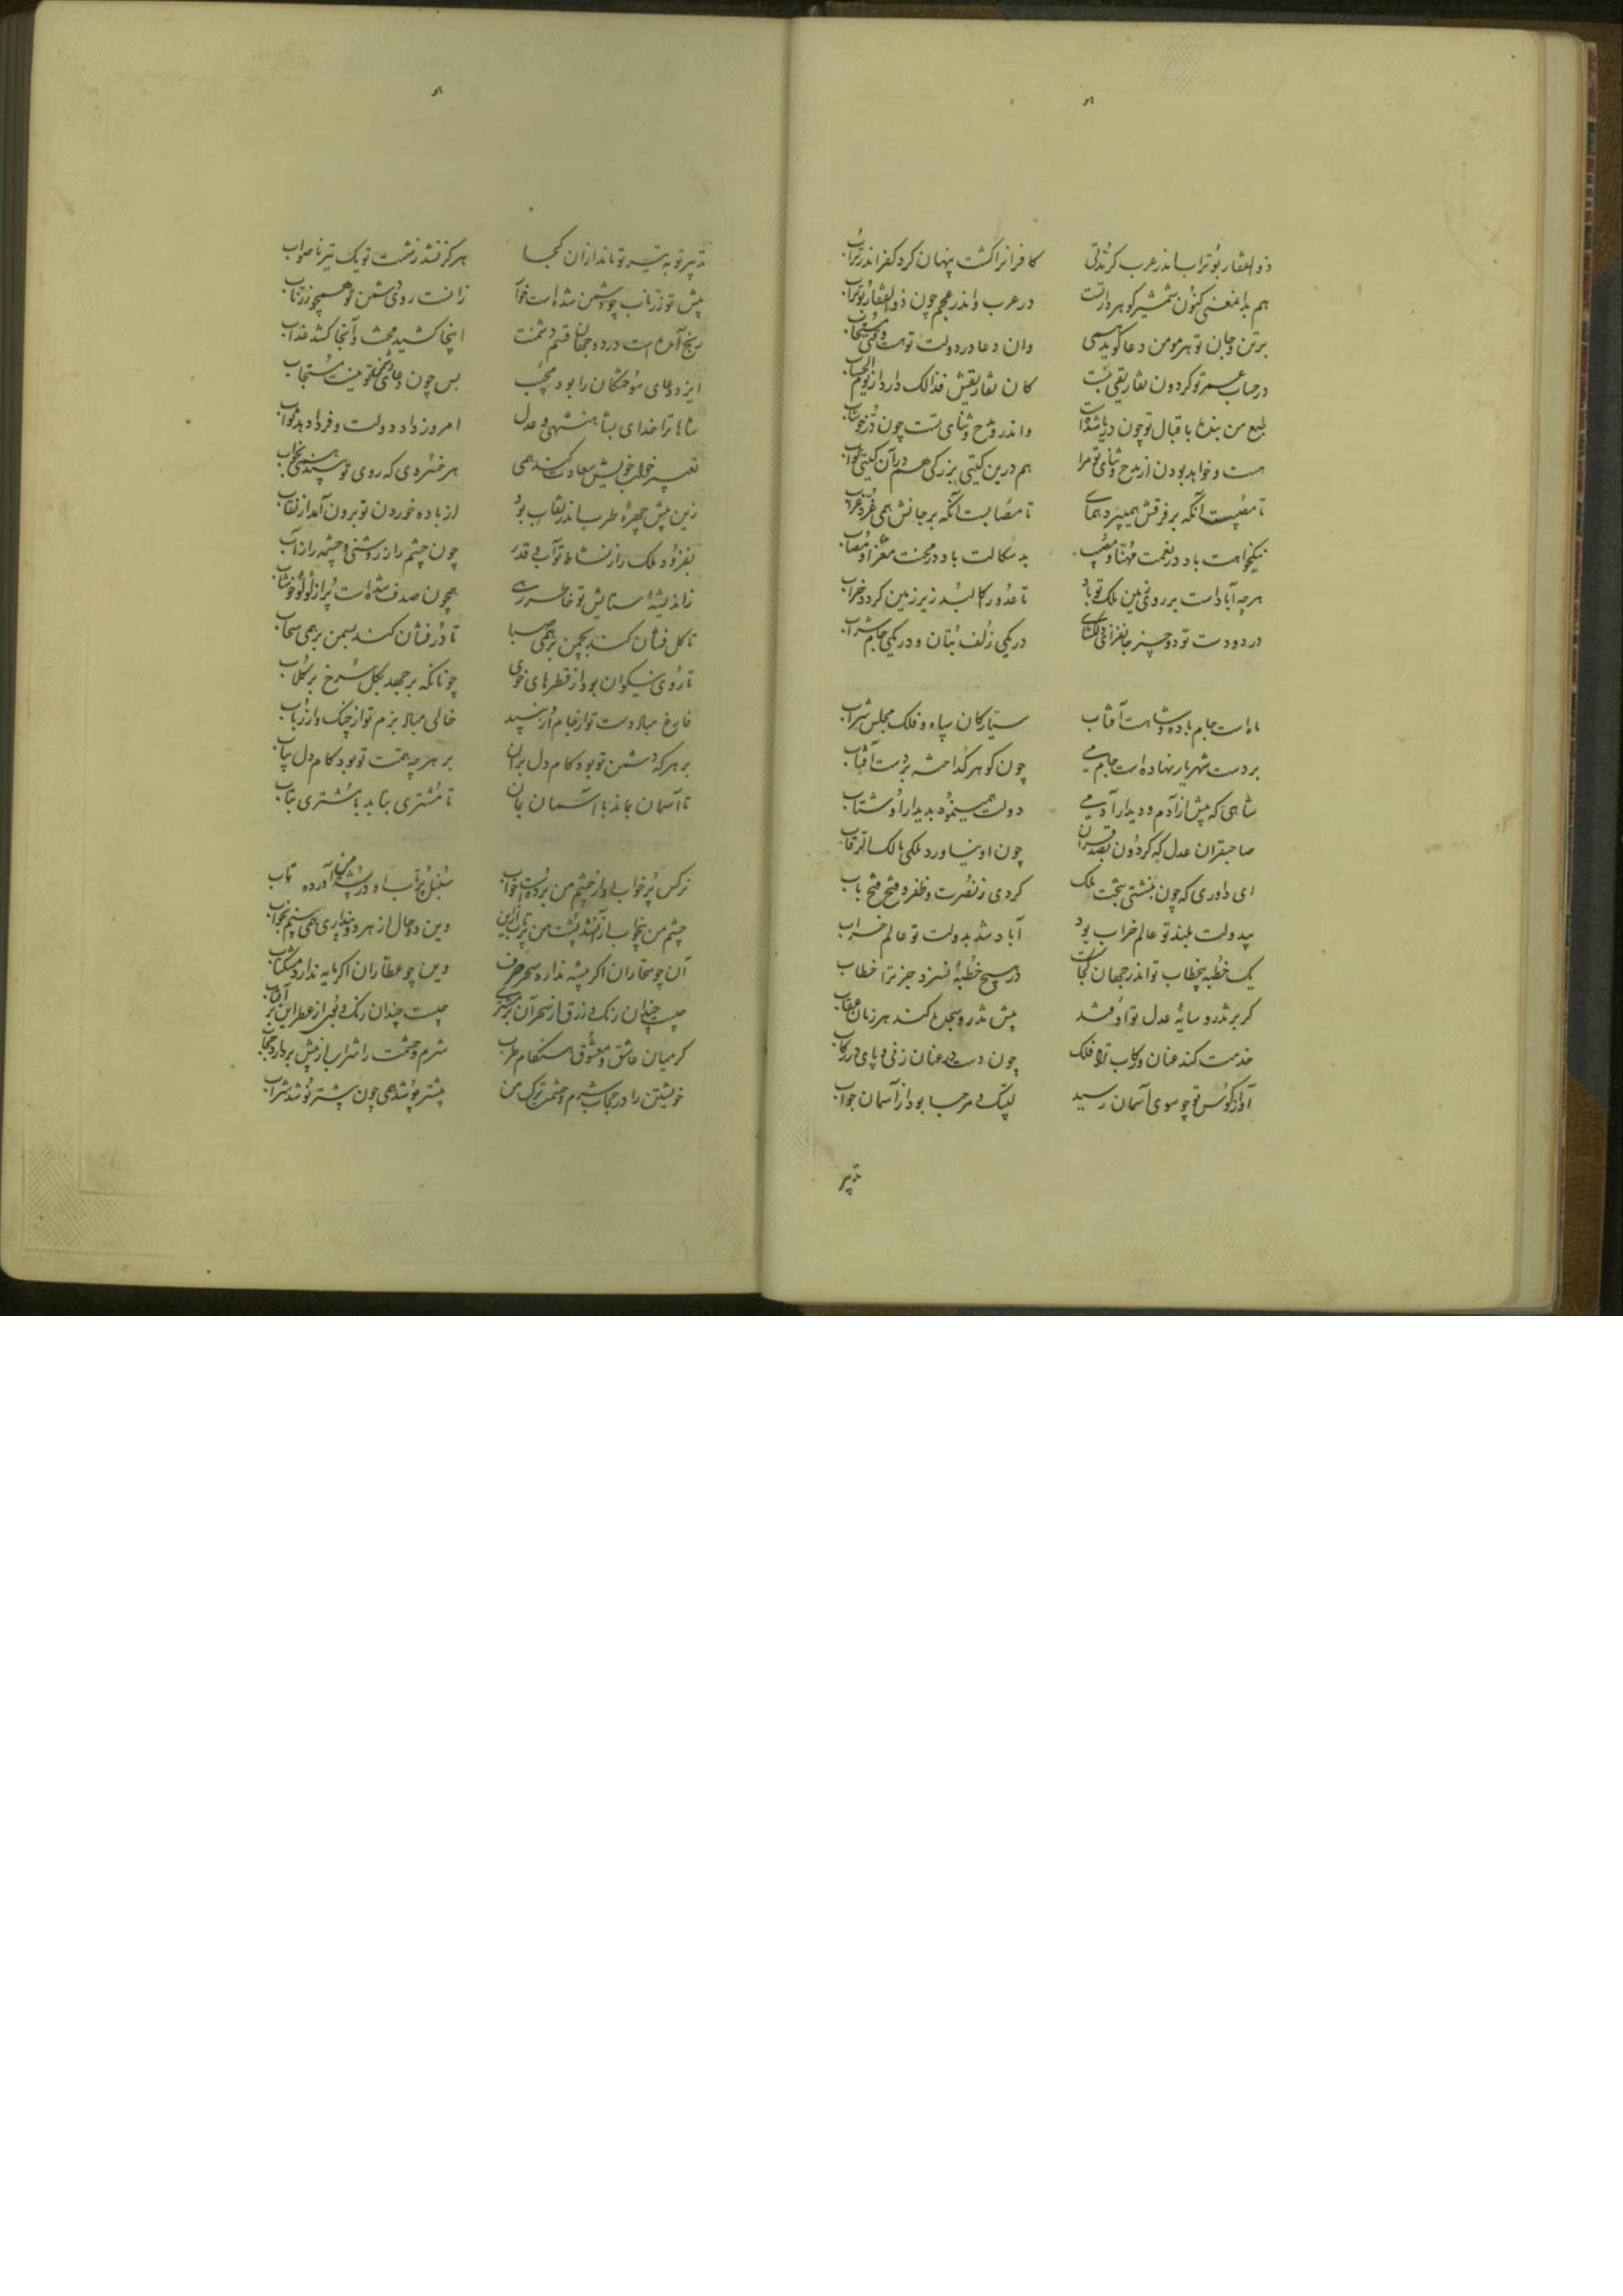 ذوالفقار بوتراب اندر عرب کر مدتی کافرانرا کشت پنهان کرد کفر اندر تراب
هم بدانمعنی کنون شمشیر گوهردار تست در عرب و اندر عجم چون ذوالفقار بوتراب
برتن و جان تو هر مومن دعا گوید همی وان دعا در دولت تو هست مستجاب
در حساب عمر تو گردون تفاریقی نبشت کان تفاریقش فذالک دارد از یوم الحساب
طبع من بنده باقبال تو چون دریا شد واندرو مدح و ثنای تست چون در خوشاب
هست و خواهد بودن از مدح و ثنای تو مرا هم درین گیتی بزرگی هم در آن گیتی ثواب
تا مصیبست آنکه بر فرقش همیپرد همای تا مصابست آنکه بر جانش همی غرد غراب
نیکخواهت باد در نعمت مهنا و مصیب بد سکالت باد در محنت معزا و مصاب
هرچه آباد است بر روی زمین ملک تو باد تا عدو را کالبد زیر زمین گردد خراب
در دو دست تو دو چیز جانفزای دلگشای در یکی زلف بتان و در یکی جام شراب
ماه است جام باده و شاهست آفتاب سیارگان سپاه و فلک مجلس شراب
بر دست شهریار نهاده است جام می چون گوهر گداخته بر دست آفتاب
شاهی که پیش از آدم و دیدار آدمی دولت همینمود بدیدار او شتاب
صاحبقران عدل که گردون بصد قران چون او نیاورد ملکی مالک الرقاب
ای داوری که چون بنشستی بتخت ملک کردی ز نصرت و ظفر و فتح فتح باب
بیدولت بلند تو عالم خراب بود آباد شد بدولت تو عالم خراب
یک خطبه بیخطاب تو اندر جهان کجاست در هیچ خطبه نسزد جز ترا خطاب
گر بر تذرو سایه عدل تو اوفتد پیش تذرو سجده کند هر زمان عقاب
خدمت کند عنان و رکاب ترا فلک چون دست در عنان زنی و پای در رکاب
آواز کوس تو چو سوی آسمان رسید لبیک و مرحبا بود از آسمان جواب
تدبیر
تدبیر تو به تیر تو ماند از آن کجا هرگز نشد ز شست تو یک تیر ناصواب
پیش تو زر ناب چو دشمن شده است خوار زانست روی دشمن تو همچو زر ناب
رنج آمده است در دو جهان قسم دشمنت اینجا کشید محنت و آنجا کشد عذاب
ایزد دعای سوختگان را بود مجیب بس چون دعای دشمن تو نیست مستجاب
شاها ترا خدای بشاهنشهی و عدل امروز داد دولت و فردا دهد ثواب
تعبیر خواب خویش سعادت کند همی هر خسروی که روی تو بیند همی بخواب
زین پیش چهره طرب اندر نقاب بود از باده خوردن تو برون آمد از نقاب
بفزود ملک را ز نشاط تو آب و قدر چون چشم را ز روشنی و چشمه را ز آب
ز اندیشه ستایش تو خاطر رهی همچون صدف شده است پر از لولو خوشاب
تا گل فشان کند بچمن بر همی صبا تا در فشان کند بسمن بر همی سحاب
تا روی نیکوان بود از قطرهای خوی چونانکه برجهد بگل سرخ بر گلاب
فارغ مباد دست تو از جام و از نبید خالی مباد بزم تو از چنگ و از رباب
بر هر که دشمن تو بود کام دل بران بر هرچه همت تو بود کام دل بیاب
تا آسمان بماند با آسمان بمان تا مشتری بتابد با مشتری بتاب
نرگس پر خواب او از چشم من بردست خواب سنبل پر تاب او در پشت من آورده تاب
چشم من بیخواب از آنشد پشت من پرتاب ازین وین دو حال از هر دو پنداری همی بینم بخواب
آن چو سحاران اگر پیشه ندارد سحر حرف وین چو عطاران اگر مایه ندارد مشک ناب
چیست چندان رنگ و زرق از سحر آن بر مشتری چیست چندان رنگ و بوی از عطر این بر آفتاب
گر میان عاشق و معشوق هنگام طرب شرم و حشمت را شراب از پیش بردارد حجاب
خویشتن را در حجاب شرم و حشمت ترک من بیشتر پوشد همی چون بیشتر نوشد شراب